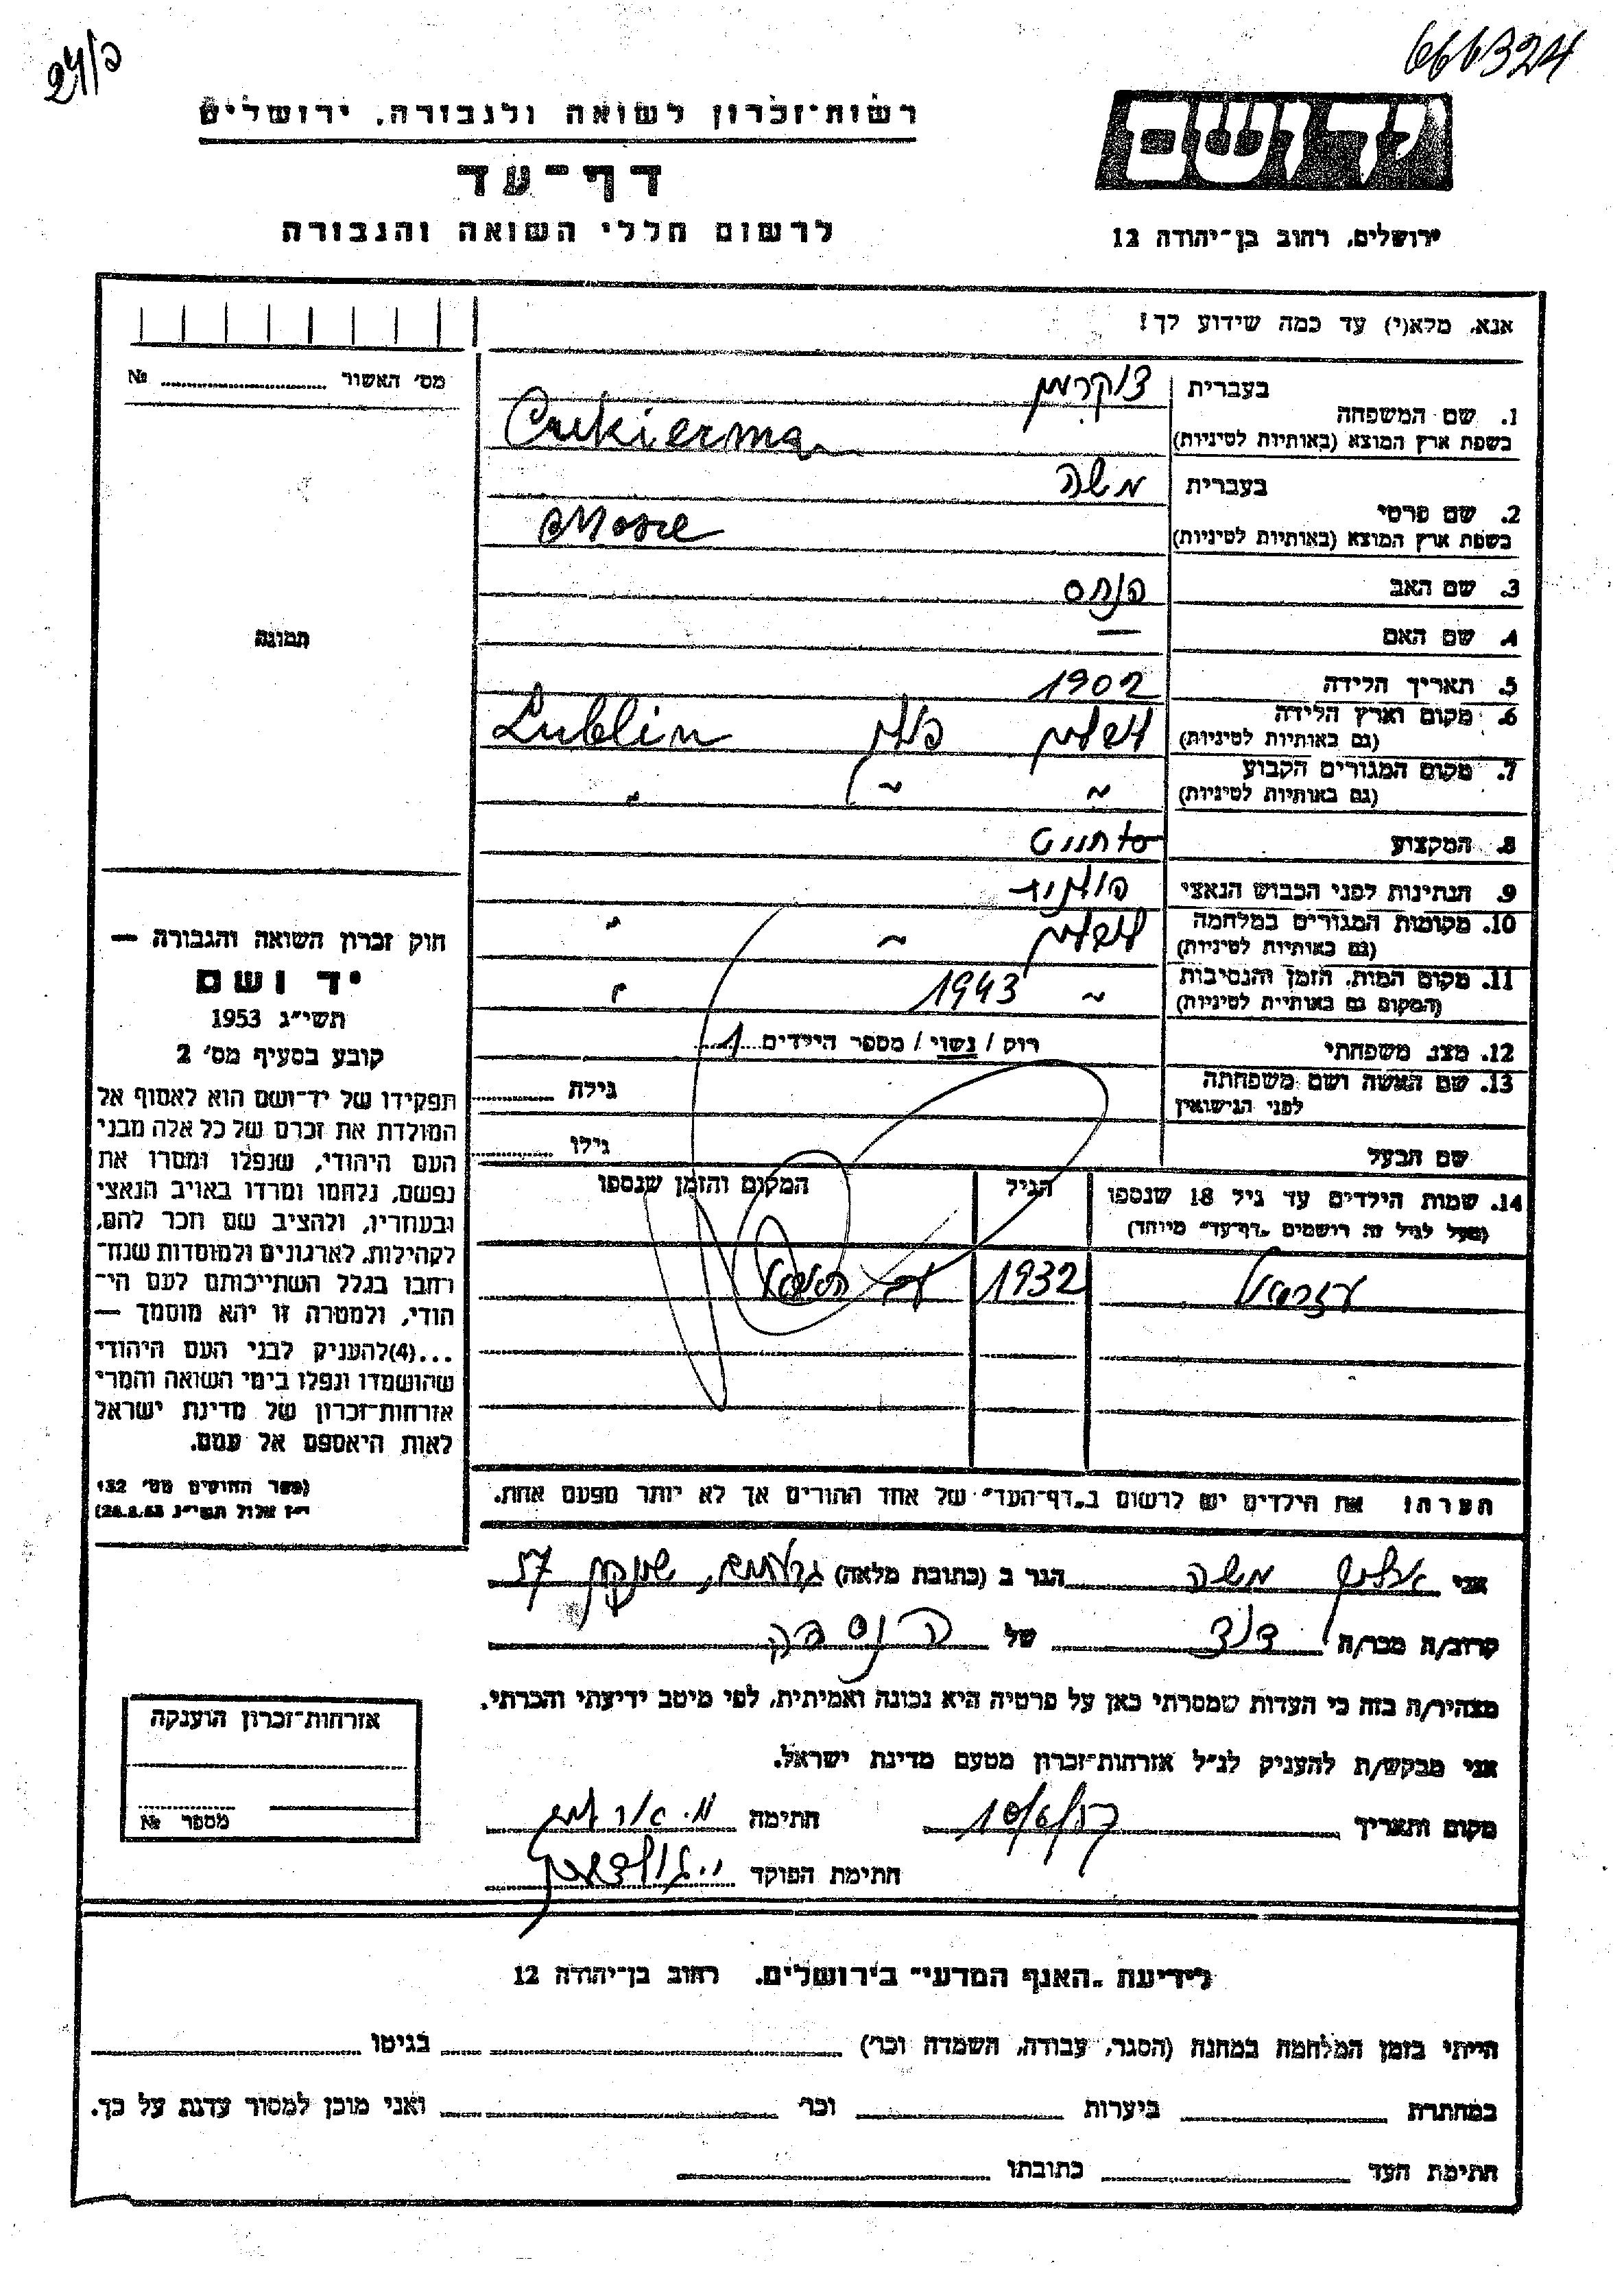 666324
24/כ
יד ושם
רשות־זכרון לשואה ולגבורה, ירושלים
דף־עד
לרשום חללי השואה והגבורה
ירושלים, רחוב בן־יהודה 12
אנא, מלא(י) עד כמה שידוע לך!
מס' האשור №
1. שם המשפחה
בעברית צוקרמן
בשפת ארץ המוצא (באותיות לטיניות) Cukierman
2. שם פרטי
בעברית משה
בשפת ארץ המוצא (באותיות לטיניות) Mosze
3. שם האב פנחס
4. שם האם —
תמונה
5. תאריך הלידה 1902
6. מקום וארץ הלידה
(גם באותיות לטיניות) לובלין פולין Lublin
7. מקום המגורים הקבוע
(גם באותיות לטיניות) ~ ~ "
8. המקצוע
9. הנתינות לפני הכבוש הנאצי פולנית
10. מקומות המגורים במלחמה
(גם באותיות לטיניות) לובלין ~ "
11. מקום המות, הזמן והנסיבות
(המקום גם באותיות לטיניות) ~ 1943 "
12. מצב משפחתי רוק / נשוי / מספר הילדים 1
13. שם האשה ושם משפחתה
לפני הנישואין גילה
שם הבעל גילו
14. שמות הילדים עד גיל 18 שנספו
(מעל לגיל זה רושמים „דף־עד" מיוחד)
הגיל
המקום והזמן שנספו
עזריאל 1932
חוק זכרון השואה והגבורה —
יד ושם
תשי"ג 1953
קובע בסעיף מס' 2
תפקידו של יד־ושם הוא לאסוף אל
המולדת את זכרם של כל אלה מבני
העם היהודי, שנפלו ומסרו את
נפשם, נלחמו ומרדו באויב הנאצי
ובעוזריו, ולהציב שם וזכר להם,
לקהילות, לארגונים ולמוסדות שנח־
רחבו בגלל השתייכותם לעם הי־
הודי, ולמטרה זו יהא מוסמך —
...(4)להעניק לבני העם היהודי
שהושמדו ונפלו בימי השואה והמרי
אזרחות־זכרון של מדינת ישראל
לאות היאספם אל עמם.
(ספר החוקים מס' 132
י"ז אלול תשי"ג 28.8.53)
הערה: את הילדים יש לרשום ב„דף־העד" של אחד ההורים אך לא יותר מפעם אחת.
אני משה הגר ב (כתובת מלאה) 57
קרוב/ה מכר/ה דוד של הנספה
מצהיר/ה בזה כי העדות שמסרתי כאן על פרטיה היא נכונה ואמיתית, לפי מיטב ידיעתי והכרתי.
אני מבקש/ת להעניק לנ"ל אזרחות־זכרון מטעם מדינת ישראל.
מקום ותאריך 10/6/57 חתימה
חתימת הפוקד
אזרחות־זכרון הוענקה
מספר №
לידיעת „האגף המדעי" בירושלים, רחוב בן־יהודה 12
הייתי בזמן המלחמה במחנה (הסגר, עבודה, השמדה וכו') בגיטו
במחתרת ביערות וכו' ואני מוכן למסור עדות על כך.
חתימת העד כתובתו